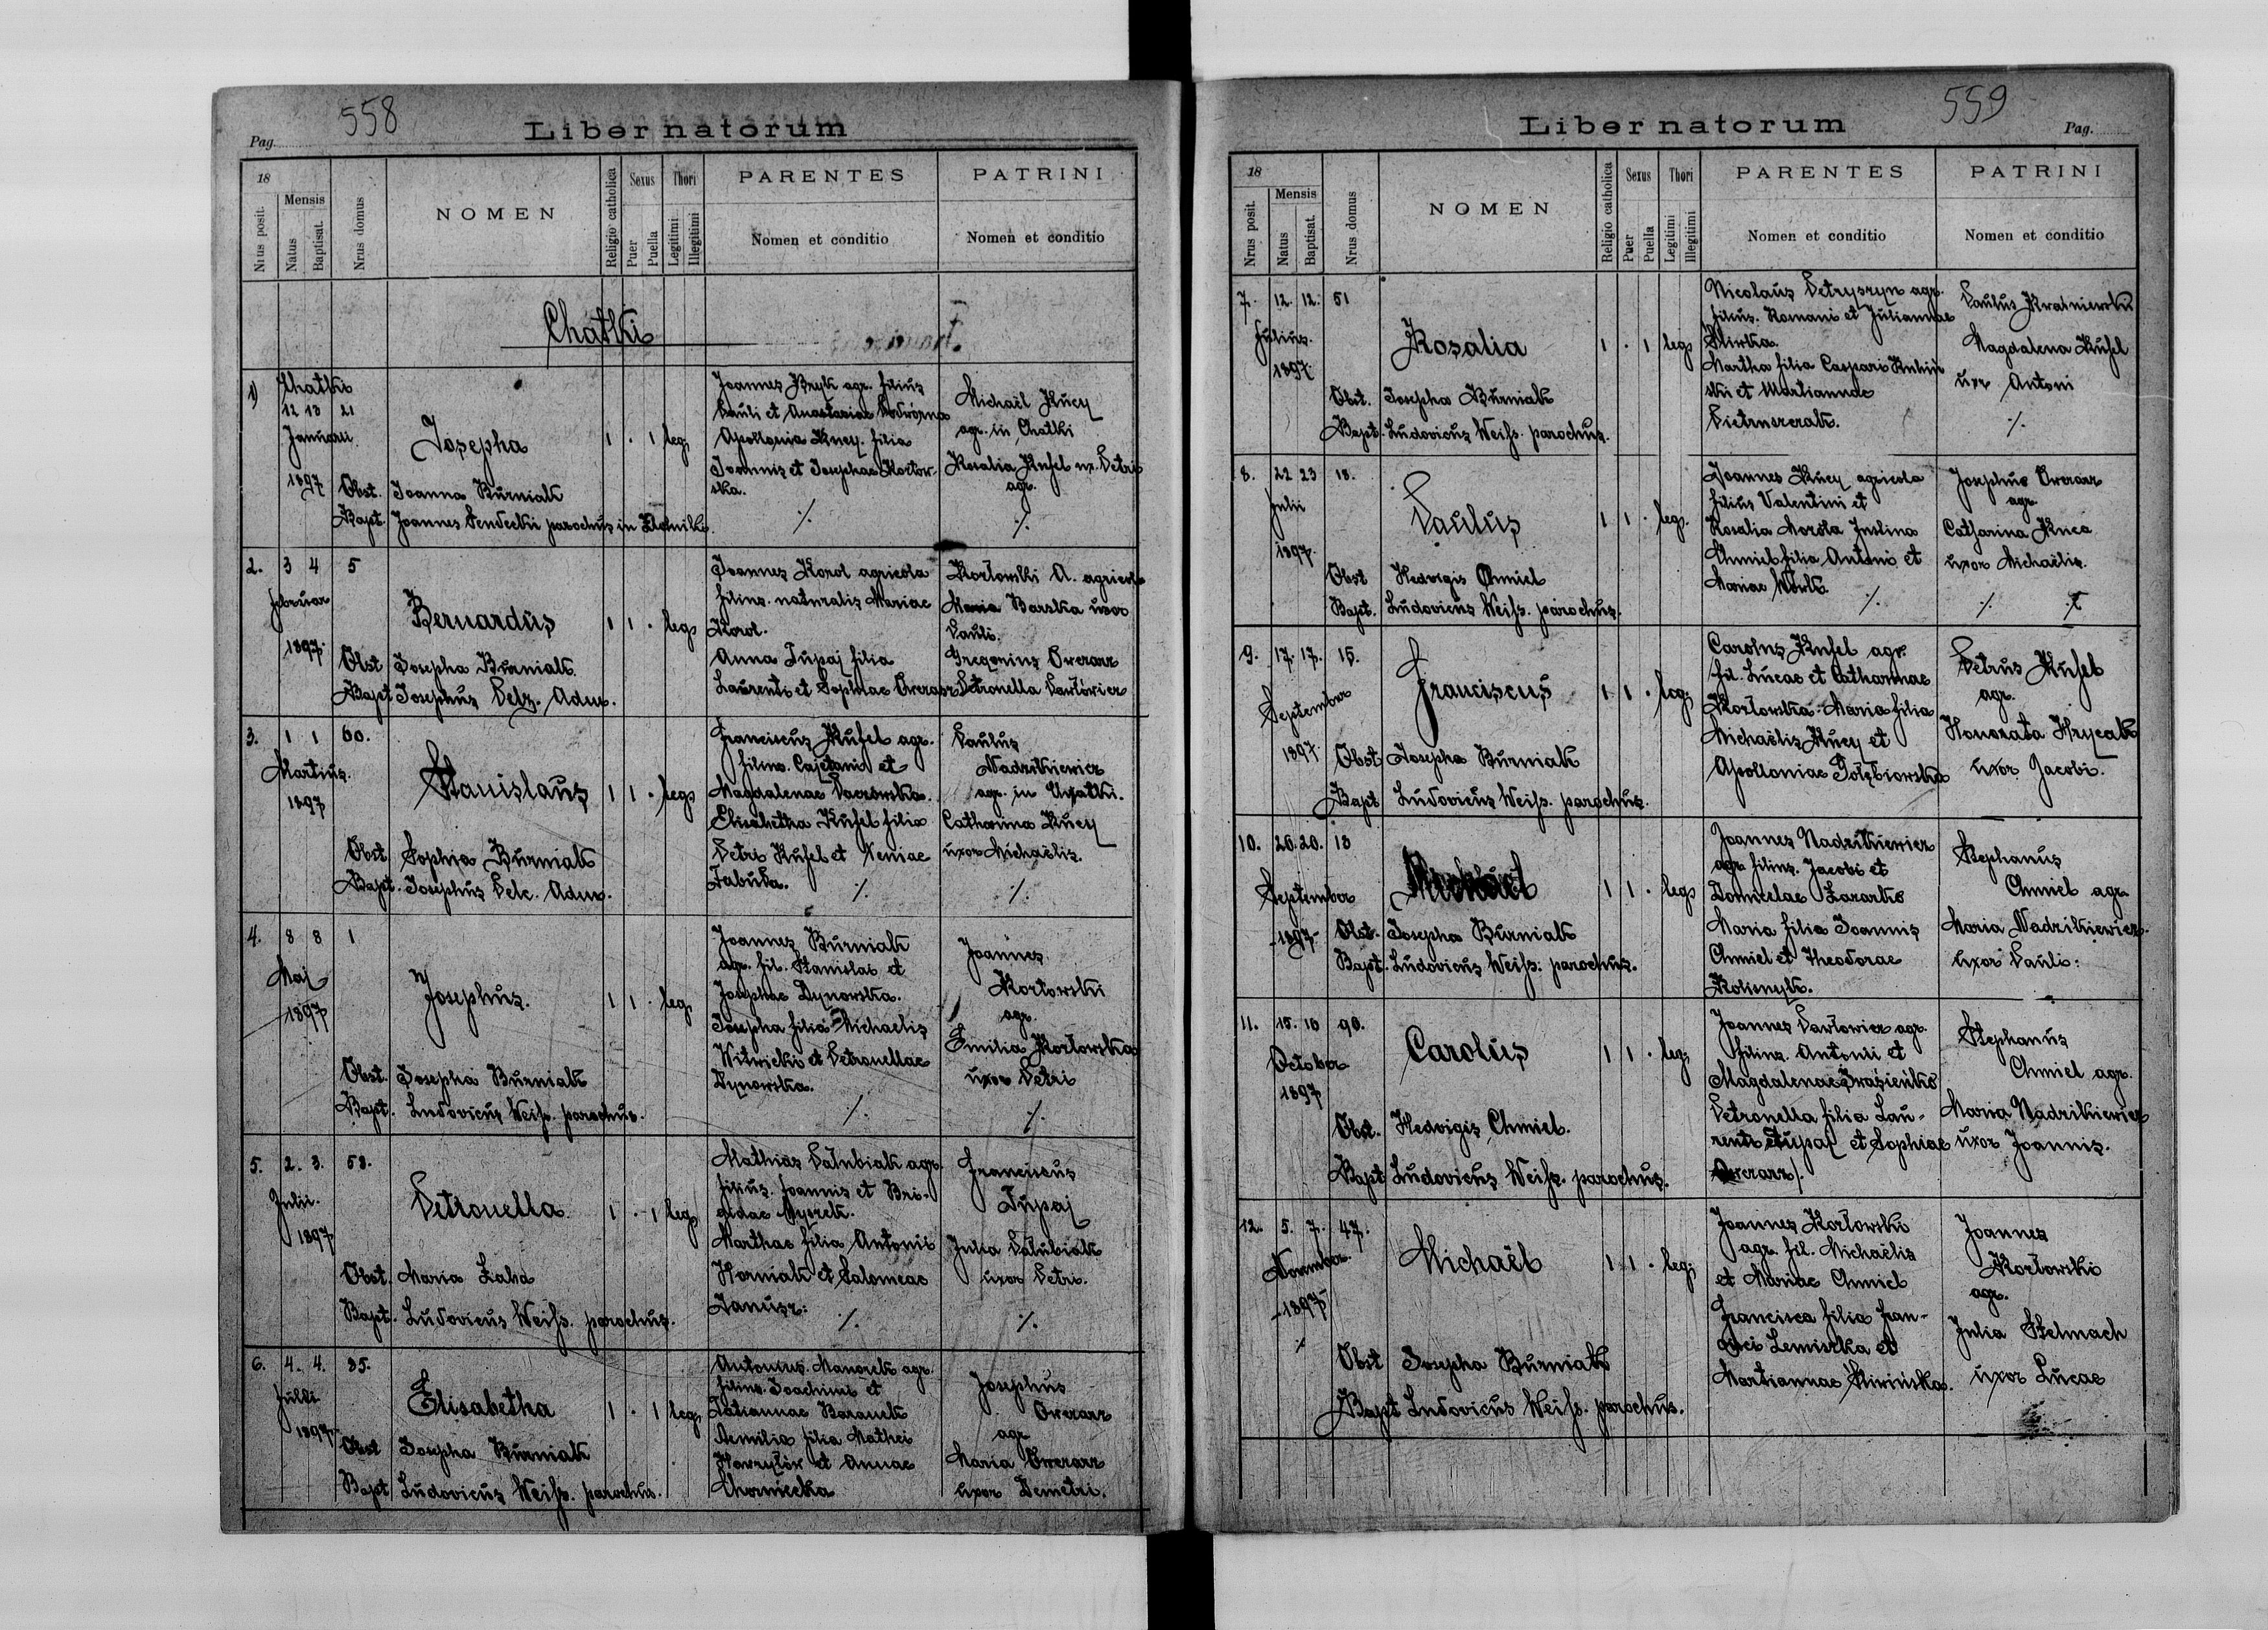 558
Pag.
Liber natorum
18
Nrus posit.
Mensis
Natus
Baptisat.
Nrus domus
NOMEN
Religio catholica
Sexus
Puer
Puella
Thori
Legitimi
Illegitimi
PARENTES
Nomen et conditio
PATRINI
Nomen et conditio
Chatki
1) Chatki
12 13 21
Januarii
1897
Josepha
1 . 1 leg.
Obst. Joanna Burniak
Bapt. Joannes parochus in
Joannes Bryk agr. filius
Pauli et Anastasiae
Apollonia Kucy filia
Joannis et Josephae Kozłow-
ska.
Michaël Kucy
agr. in Chatki
Rosalia Kufel ux. Petri
agr.
2. 3 4 5
Februar
1897
Bernardus
1 1 . leg
Obst Josepha Burniak
Bapt Josephus Pelz. Adm.
Joannes Korol agricola
filius naturalis Mariae
Korol.
Anna Tupaj filia
Laurenti et Sophiae Owerarz
Kozłowski A. agricola
Maria Barska uxor
Pauli.
Gregorius Owerarz
Petronella Pawłowicz
3. 1 1 60.
Martius.
1897
Stanislaus
1 1 . leg
Obst Sophia Burniak
Bapt. Josephus Pelc. Adm.
Franciscus Kufel agr.
filius Cajetani et
Magdalenae
Elisabetha Kufel filia
Petri Kufel et Xeniae
Tabuda. ./.
Paulus
Nadzikiewicz
agr. in Chatki.
Catharina Kucy
uxor Michaëlis.
./.
4. 8 8 1
Maj
1897
Josephus.
1 1 . leg
Obst. Josepha Burniak
Bapt. Ludovicus Weiss. parochus.
Joannes Burniak
agr. fil. Stanislai et
Josephae Dynowska.
Josepha filia Michaelis
Witwicki et Petronellae
Dynowska.
./.
Joannes
Kozłowski
agr.
Emilia Kozłowska
uxor Petri
./.
5. 2. 3. 58.
Julii.
1897
Petronella
1 . 1 leg
Obst. Maria Zaha
Bapt. Ludovicus Weiss. parochus.
Mathias Pałubiak agr.
filius Joannis et Bri-
gidae
Marthae filia Antonii
Horniak et Salomeae
Janusz.
./.
Franciscus
Tupaj
Julia Pałubiak
uxor Petri.
./.
6. 4. 4. 35.
Julii
1897
Elisabetha
1 . 1 leg
Obst Josepha Burniak
Bapt Ludovicus Weiss. parochus.
Antonius agr.
filius Joachimi et
Tatiannae
Aemilia filia Mathei
et Annae
Josephus
Owerarz
agr
Maria Owerarz
uxor Demetri.
559
Liber natorum
Pag.
18
Nrus posit.
Mensis
Natus
Baptisat.
Nrus domus
NOMEN
Religio catholica
Sexus
Puer
Puella
Thori
Legitimi
Illegitimi
PARENTES
Nomen et conditio
PATRINI
Nomen et conditio
7. 12. 12. 51
Julius.
1897
Rosalia
1 . 1 leg
Obst. Josepha Burniak
Bapt. Ludovicus Weiss. parochus.
Nicolaus agr.
filius Romani et Juliannae
Martha filia Caspari
ski et Martiannae
Paulus
Magdalena Kufel
uxor Antoni
./.
8. 22 23 18.
Julii
1897
Paulus
1 1 . leg.
Obst Hedvigis Chmiel
Bapt. Ludovicus Weiss. parochus.
Joannes Kucy agricola
filius Valentini et
Rosalia Justina
Chmiel filia Antoni et
Mariae
./.
Josephus Owerarz
agr.
Catharina
uxor Michaëlis.
./.
9. 17. 17. 15.
September
1897
Franciscus
1 1 . leg
Obst Josepha Burniak
Bapt Ludovicus Weiss. parochus.
Carolus Kufel agr.
fil. Lucae et Catharinae
Kozłowska. Maria filia
Michaëlis Kucy et
Apolloniae Gołębiowska
Petrus Kufel
agr.
Honorata Hrycak
uxor Jacobi.
10. 20. 20. 18
September
1897
Michaël
1 1 . leg
Obst. Josepha Burniak
Bapt. Ludovicus Weiss. parochus.
Joannes Nadzikiewicz
agr filius Jacobi et
Domicelae
Maria filia Joannis
Chmiel et Theodorae
Stephanus
Chmiel agr
Maria Nadzikiewicz
uxor Pauli:
11. 15. 16 90.
October
1897
Carolus
1 1 . leg
Obst. Hedvigis Chmiel.
Bapt Ludovicus Weiss. parochus.
Joannes Pawłowicz agr.
filius Antoni et
Magdalenae
Petronella filia Lau-
renti Tupaj et Sophiae
Owerarz/.
Stephanus
Chmiel agr.
Maria Nadzikiewicz
uxor Joannis.
12. 5. 7. 47.
November
1897
Michaël
1 1 . leg
Obst Josepha Burniak
Bapt Ludovicus Weiss. parochus.
Joannes Kozłowski
agr. fil. Michaëlis
et Mariae Chmiel
Francisca filia Fran-
cisci Lemiszka et
Martiannae Śliwińska.
Joannes
Kozłowski
agr.
Julia Stelmach
uxor Lucae